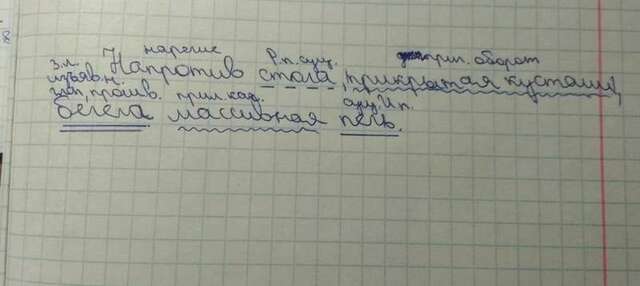 з.л. наречие Р.п. сущ. прич. оборот
изъяв.н. Напротив стола, прикрытая кустами,
глаг, прош.в. прил. кач. сущ. И.п.
белела массивная печь.